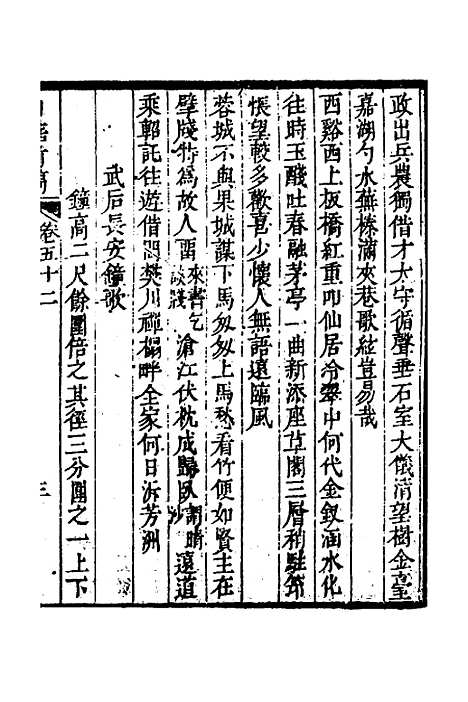 政出兵農獨借才太守循聲垂石室大儀清望樹金臺
嘉湖勺水蕪榛滿夾巷歌絃豈易哉
西谿西上板橋紅重叩仙居冷翠中何代金釵涵水化
往時玉醆吐春融茅亭一曲新添座草閣三層稍駐筇
悵望較多歡喜少懷人無語遠臨風
蓉城不與果城謀下馬匆匆上馬愁看竹便如賢主在
壁牋特為故人留來書乞談牋滄江伏枕成歸臥謂晴沙遠道
乘軺託往遊借問樊川禪榻畔全家何日泝芳洲
武后長安鐘歌
鐘高二尺餘圍倍之其徑三分圍之一上下
卷五十二
三